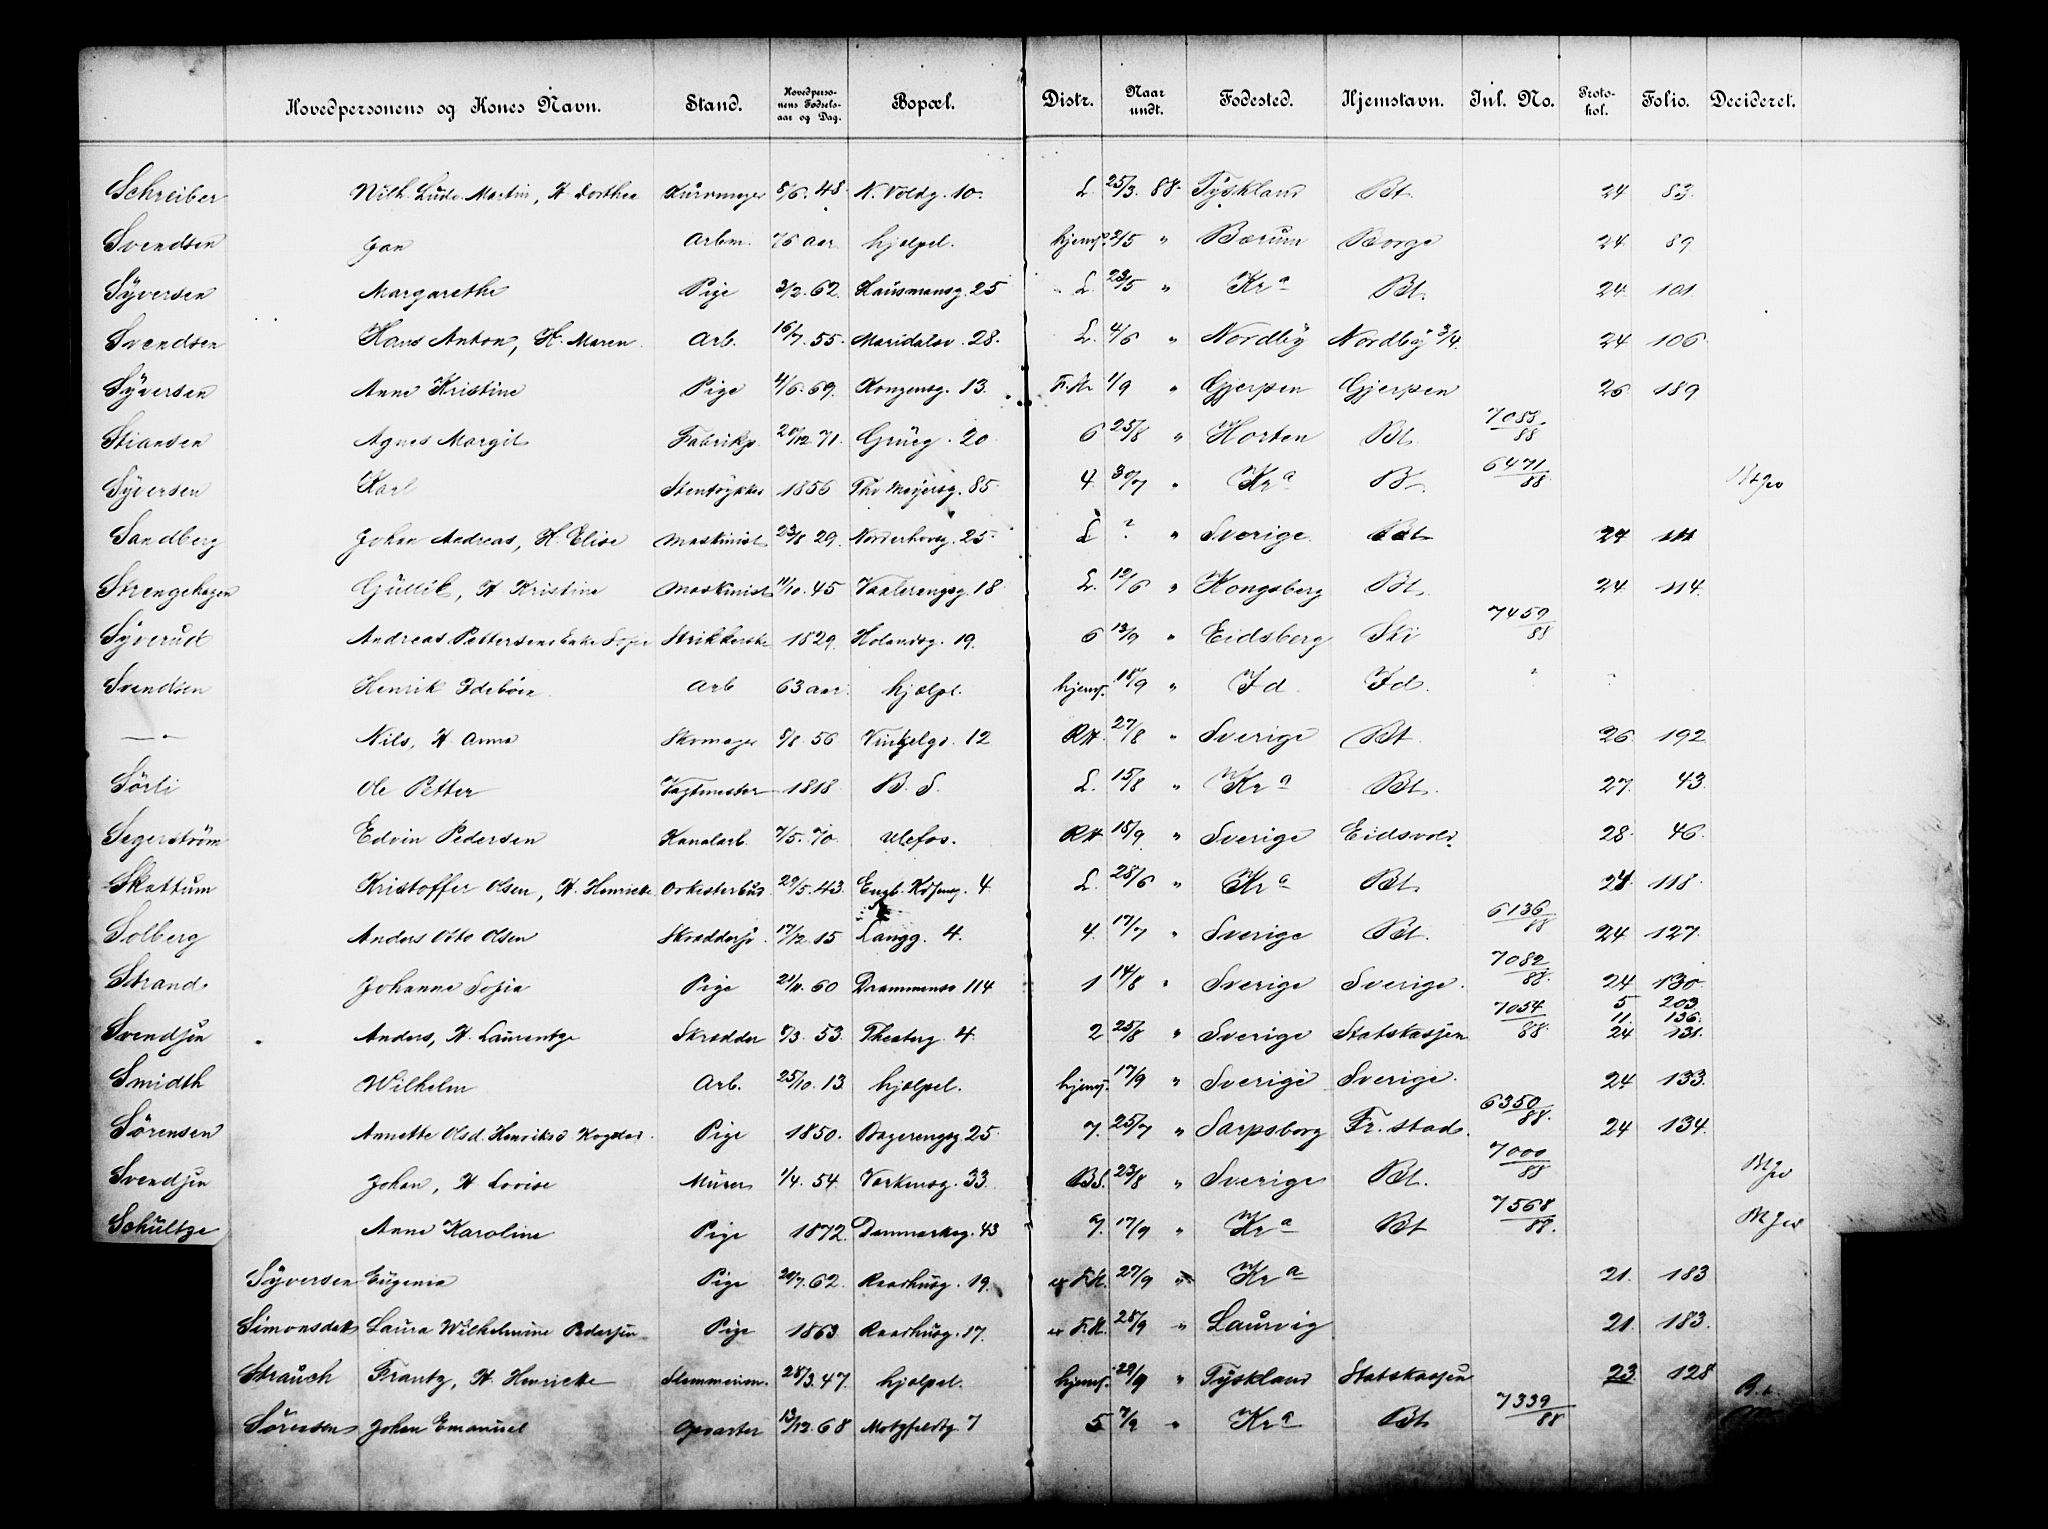 Hovedpersonens og Kones Navn. Stand. Hovedperso-nens Fødsels-aar og Dag. Bopæl. Distr. Naar undt. Fødested. Hjemstavn. Inl. No. Proto-kol. Folio. Decideret.
Schreiber Vilh. Ludv. Martin, H. Dorthea Kurvmager 5/6. 48. N. Voldg. 10. L. 25/3. 88. Tyskland Bt. 24 83.
Svendsen Jan Arbm. 76 aar. hjelpel. hjemf. 2/5 " Bærum Borge 24 89
Syversen Margarethe Pige 3/2. 62. Hausmansg. 25 L. 23/5 " Kra Bt. 24. 101.
Svendsen Hans Anton, H. Maren Arb. 16/7. 55. Maridalsv. 28. L. 4/6 " Nordby Nordby 3/4. 24 106.
Syversen Anne Kristine Pige 4/6. 69. Kongensg. 13. F.K. 1/9 " Gjerpen Gjerpen 26. 189.
Stiansen Agnes Margit Fabrikp. 20/12 71. Grüeg. 20. 6 25/8 " Horten Bt. 7088/88
Syversen Karl 1856 Thv Meyersg. 85. 4. 30/7 " Kra B. 6471/88
Sandberg Johan Andreas, H. Elise Maskinist 23/8 29. Norderhovsg. 25 L ? " Sverige Bt 24 111
Strengehagen Gullik, H Kristine Maskinist 11/10. 45 Vaalerengsg. 18 L. 12/6 " Kongsberg Bt. 24 114.
Syverud Andreas Pettersens Enke Sofie Strikkerske 1829. Holandsg. 19. 6 13/9 " Eidsberg Ski 7459/88
Svendsen Henrik Idebøen Arb 63 aar. hjælpel. hjemf. 18/9 " Id. Id.
— " — Nils, H. Anna Skomager 5/8. 56 Vinkelgd. 12 RH. 27/8 " Sverige Bt 26. 192
Sørli Ole Petter Vagtmester 1818. B. S. L. 15/8 " Kra Bt. 27. 43.
Segerstrøm Edvin Pedersen Kanalarb. 7/5. 70. Ulefos. RH 15/9 " Sverige Eidsvold. 28. 46.
Skattum Kristoffer Olsen, H. Henriette Orkesterbud 29/5. 43. 4 L. 28/6 " Kra Bt. 24. 118.
Solberg Anders Otto Olsen 17/12. 15 Langg. 4. 4. 17/7 " Sverige Bt. 6136/88 24 127.
Strand Johanne Sofia Pige 21/11. 60 Drammensv 114 1 14/8 " Sverige Sverige. 7082/88. 24 130.
5 203
11. 136.
Svendsen Anders, H. Laurentze Skrædder 8/3. 53. Theaterg. 4. 2 25/8 " Sverige Statskassen 7054/88. 24 131.
Smidth Wilhelm Arb. 25/10. 13. hjælpel. hjemf. 17/9 " Sverige Sverige. 24 133.
Sørensen Annette Olsd. Pige 1850. Bøgerengsg. 25. 7. 25/7 " Sarpsborg Fr. stad. 6350/88. 24 134.
Svendsen Johan, H Lovise Murer 1/4. 54. Verkensg. 33. BS. 23/8 " Sverige Bt. 7000/88
Schultze Anne Karoline Pige 1872. Danmarksg. 43 7. 17/9 " Kra Bt 7568/88.
Syversen Eugenia Pige 20/7. 62. Raadhusg. 19. F.K. 27/9 " Kra 21. 183
Simonsdatt Laura Wilhelmine Pedersen Pige 1863. Raadhusg. 17. F.K. 28/9 " Laurvig 21. 183.
Strauch Frantz, H. Henriette 28/3. 47. hjælpel. hjemf. 29/9 " Tyskland Statskassen 23. 128
Sørensen Johan Emanuel Opvarter 13/12. 68 Motzfeldtg. 7 5 7/9 " Kra Bt 7339/88